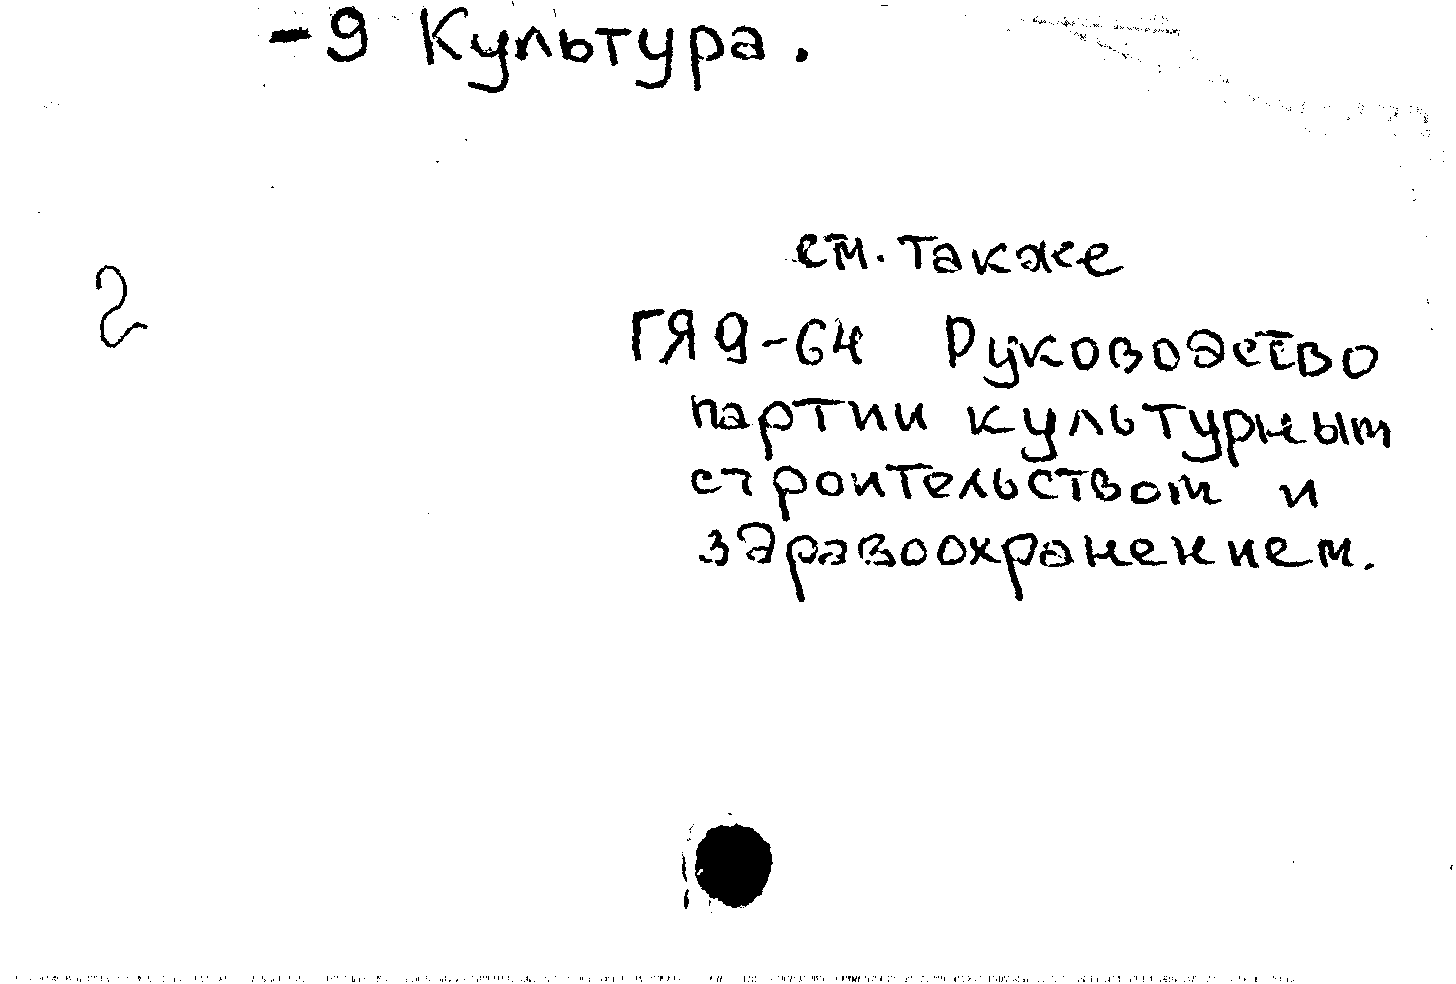 -9 Культура.
см. также
2
ГЯ9-64 Руководство
партии культурным
строительством и
здравоохранением.